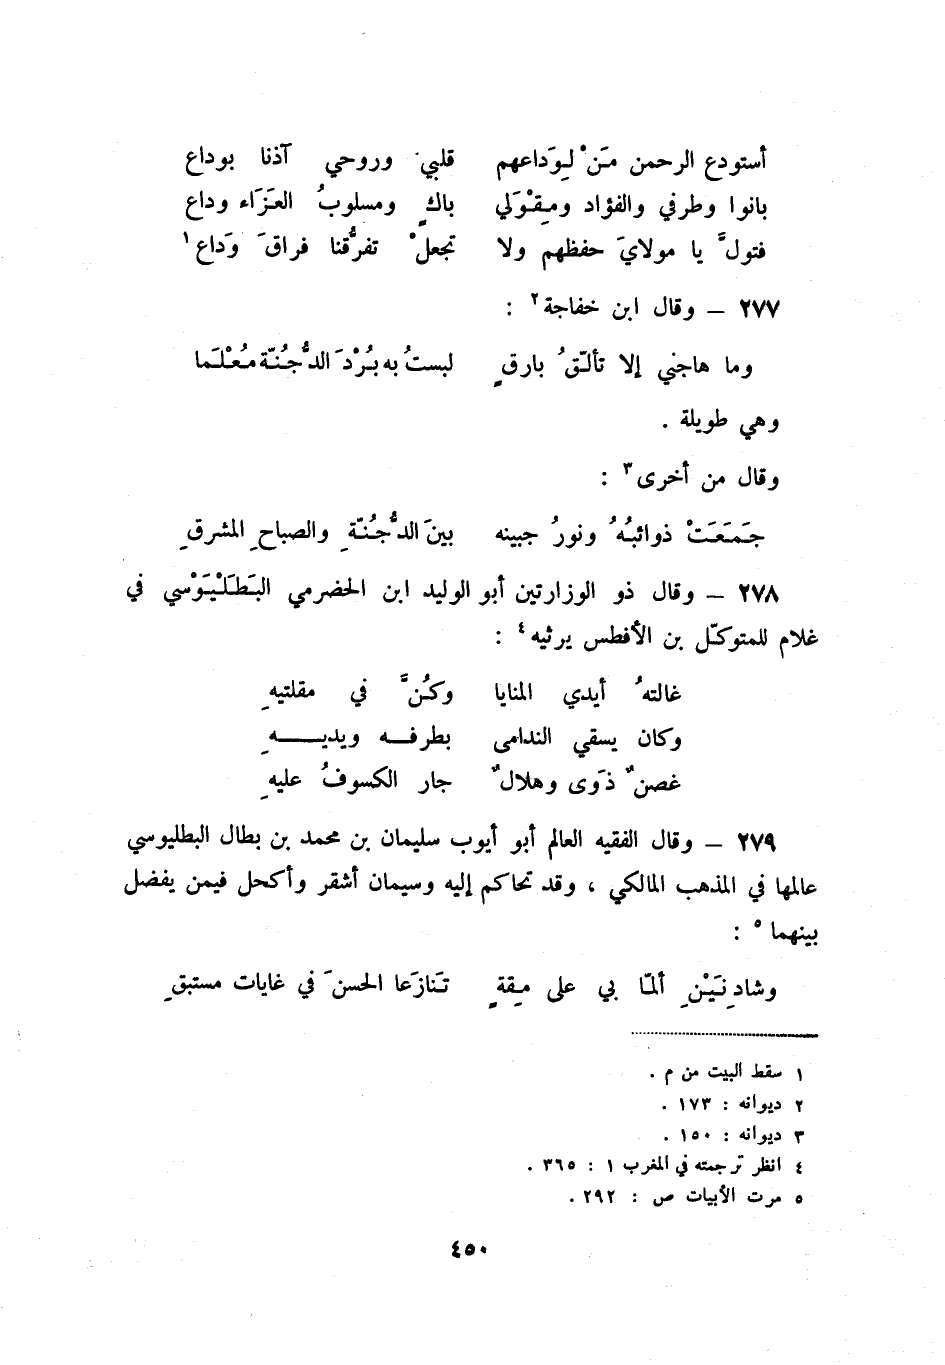 أستودع الرحمن مَنْ لِوَداعهم قلبي وروحي آذنا بوداع
بانوا وطرفي والفؤاد ومِقْوَلي باكٍ ومسلوبُ العَزَاء وداع
فتولَّ يا مولايَ حفظهم ولا تجعلْ تفرُّقنا فراقَ وَداع١
٢٧٧ – وقال ابن خفاجة٢ :
وما هاجني إلا تألّقُ بارقٍ لبستُ به بُرْدَ الدُّجُنّة مُعْلَما
وهي طويلة .
وقال من أخرى٣ :
جَمَعَتْ ذوائبُهُ ونورُ جبينه بينَ الدُّجُنّةِ والصباحِ المشرقِ
٢٧٨ – وقال ذو الوزارتين أبو الوليد ابن الحضرمي البَطَلْيَوْسي في
غلام للمتوكّل بن الأفطس يرثيه٤ :
غالتهُ أيدي المنايا وكُنَّ في مقلتيهِ
وكان يسقي الندامى بطرفـه ويديـــهِ
غصنٌ ذَوى وهلالٌ جار الكسوفُ عليهِ
٢٧٩ – وقال الفقيه العالم أبو أيوب سليمان بن محمد بن بطال البطليوسي
عالمها في المذهب المالكي ، وقد تحاكم إليه وسيمان أشقر وأكحل فيمن يفضل
بينهما٥ :
وشادِنَيْنِ ألمّا بي على مِقةٍ تَنازَعا الحسنَ في غايات مستبقِ
١ سقط البيت من م .
٢ ديوانه : ١٧٣ .
٣ ديوانه : ١٥٠ .
٤ انظر ترجمته في المغرب ١ : ٣٦٥ .
٥ مرت الأبيات ص : ٢٩٢ .
٤٥٠